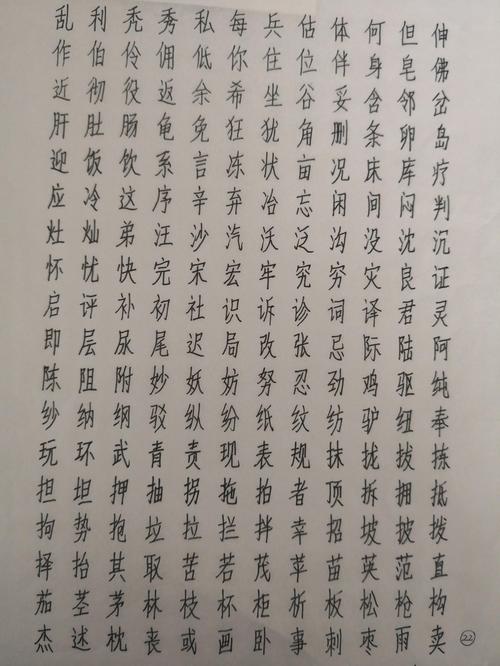 乱利秃秀私每兵估体何但伸
作伯伶佣低你住位伴身皂佛
近彻役返余希坐谷妥含邻岔
肝肚肠龟免狂犹角删条卵岛
迎饭饮系言冻状亩况床库疗
应冷这序辛弃冶忘闲间闷判
灶灿弟汪沙汽沃泛沟没沈沉
怀忧快完宋宏牢究穷灾良证
启评补初社识诉诊词译君灵
即层尿尾迟局改张忌际陆阿
陈阻附妙妖妨努忍劲鸡驱纯
纱纳纲驳纵纷纸纹纺驴纽奉
玩环武青责现表规抹拢拔拣
担坦押抽拐拖拍者顶拆拥抵
拘势抱垃拉拦拌幸招坡披拨
择抬其取苦若茂苹苗英范直
茄茎茅林枝杯柜析板松枪构
杰述枕丧或画卧事刺枣雨卖
22